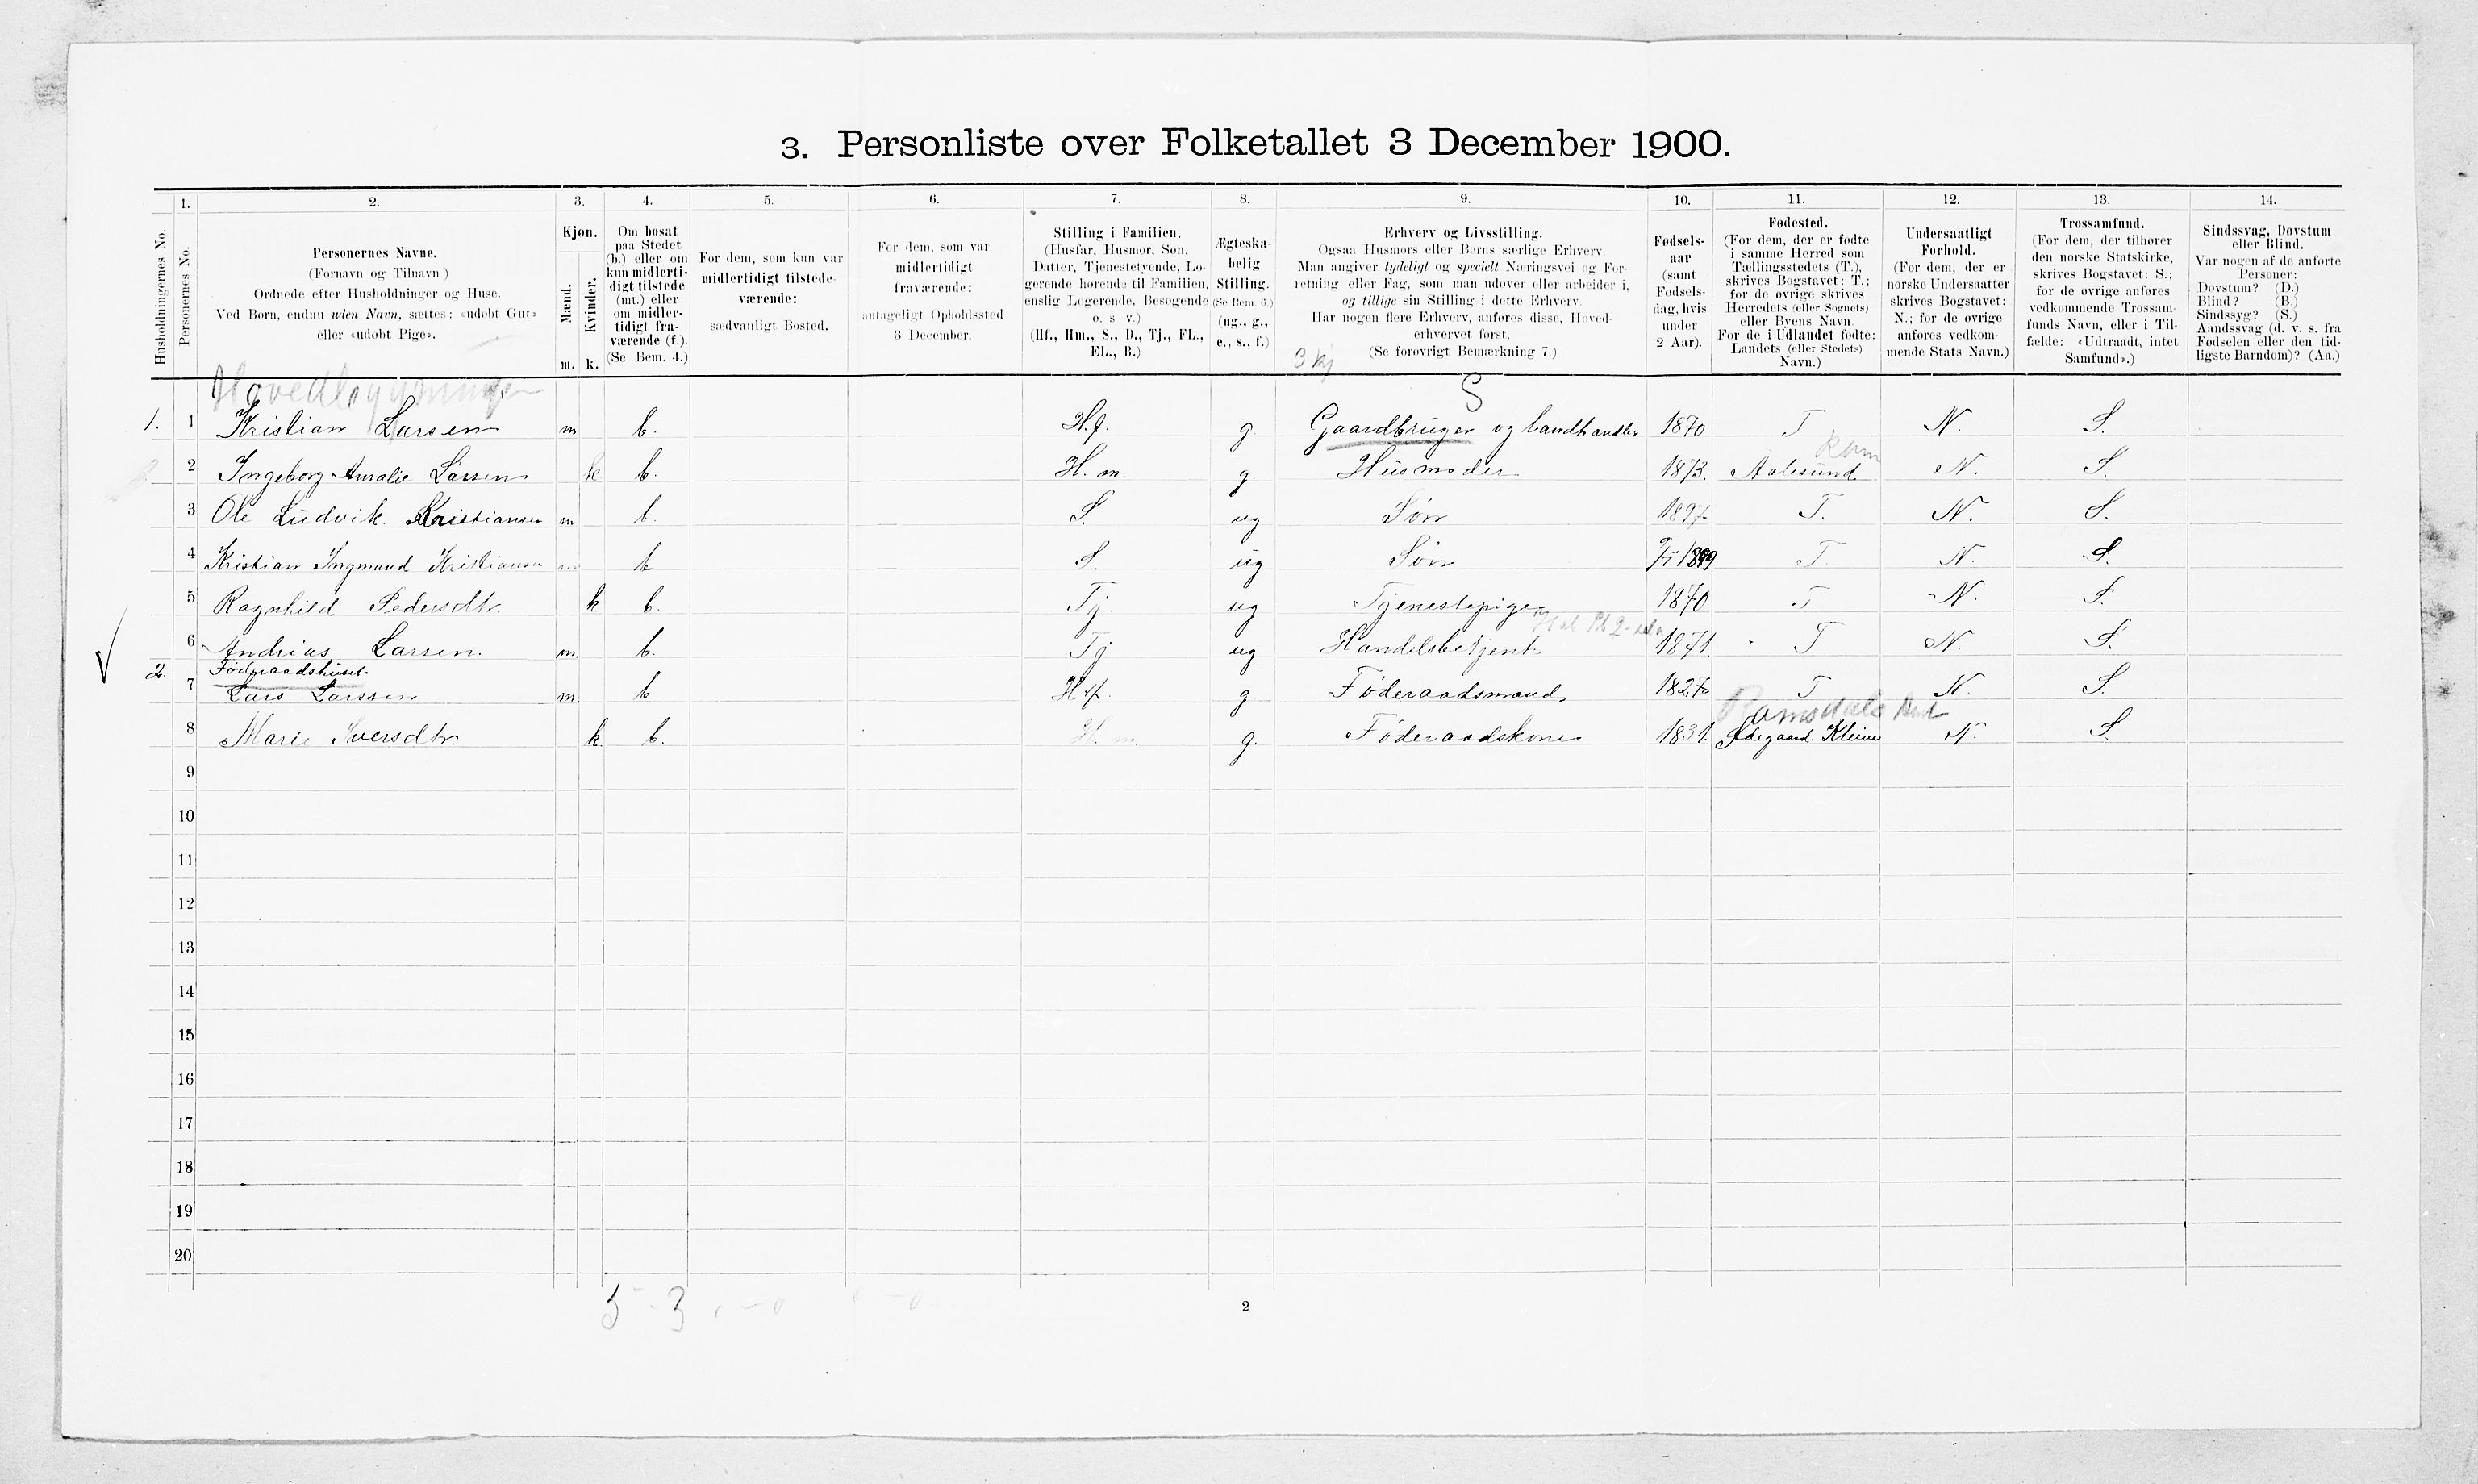 3. Personliste over Folketallet 3 December 1900.
1. 2. 3. 4. 5. 6. 7. 8. 9. 10. 11. 12. 13. 14.
Husholdningernes No.
Personernes No.
Personernes Navne.
(Fornavn og Tilnavn)
Ordnede efter Husholdninger og Huse.
Ved Børn, endnu uden Navn, sættes: «udøbt Gut»
eller «udøbt Pige».
Kjøn.
Mænd.
Kvinder.
m. k.
Om bosat
paa Stedet
(b.) eller om
kun midlerti-
digt tilstede
(mt.) eller
om midler-
tidigt fra-
værende (f.).
(Se Bem. 4.)
For dem, som kun var
midlertidigt tilstede-
værende:
sædvanligt Bosted.
For dem, som var
midlertidigt
fraværende:
antageligt Opholdssted
3 December.
Stilling i Familien.
(Husfar, Husmor, Søn,
Datter, Tjenestetyende, Lo-
gerende hørende til Familien,
enslig Logerende, Besøgende
o. s. v.)
(Hf., Hm., S., D., Tj., FL.,
EL., B.)
Ægteska-
belig
Stilling.
(Se Bem. 6.)
(ug., g.,
e., s., f.)
Erhverv og Livsstilling.
Ogsaa Husmors eller Børns særlige Erhverv.
Man angiver tydeligt og specielt Næringsvei og For-
retning eller Fag, som man udøver eller arbeider i,
og tillige sin Stilling i dette Erhverv.
Har nogen flere Erhverv, anføres disse, Hoved-
erhvervet først.
(Se forøvrigt Bemærkning 7.)
Fødsels-
aar
(samt
Fødsels-
dag, hvis
under
2 Aar).
Fødested.
(For dem, der er fødte
i samme Herred som
Tællingsstedets (T.),
skrives Bogstavet: T.;
for de øvrige skrives
Herredets (eller Sognets)
eller Byens Navn.
For de i Udlandet fødte:
Landets (eller Stedets)
Navn.)
Undersaatligt
Forhold.
(For dem, der er
norske Undersaatter
skrives Bogstavet:
N.; for de øvrige
anføres vedkom-
mende Stats Navn.)
Trossamfund.
(For dem, der tilhører
den norske Statskirke,
skrives Bogstavet: S.;
for de øvrige anføres
vedkommende Trossam-
funds Navn, eller i Til-
fælde: «Udtraadt, intet
Samfund».)
Sindssvag, Døvstum
eller Blind.
Var nogen af de anførte
Personer:
Døvstum? (D.)
Blind? (B.)
Sindssyg? (S.)
Aandssvag (d. v. s. fra
Fødselen eller den tid-
ligste Barndom)? (Aa.)
Hovedbygningen 3 kj S
1. 1 Kristian Larsen m b. H.f. g. Gaardbruger og landhandler 1870 T N. S.
2 Ingeborg Amalie Larsen k b. H.m. g. Husmoder 1873. Aalesund N. S.
3 Ole Ludvik Kristiansen m b. S. ug Søn 1897 T. N. S.
4 Kristian Ingmand Kristiansen m b S. ug Søn 1899 T. N. S.
5 Ragnhild Pedersdtr. k b. Tj ug Tjenestepige 1870 T N. S.
6 Andrias Larsen. m. b. Tj ug Handelsbetjent 1871. T N. S.
Føderaadshuset.
2. 7 Lars Larssen m. b H.f. g Føderaadsmand 1827 T N. S.
Romsdals Amt
8 Marie Iversdtr. k. b. H.m. g. Føderaadskone 1831. Ødegaard. Kleive N. S.
9
10
11
12
13
14
15
16
17
18
19
20
5 - 3
2